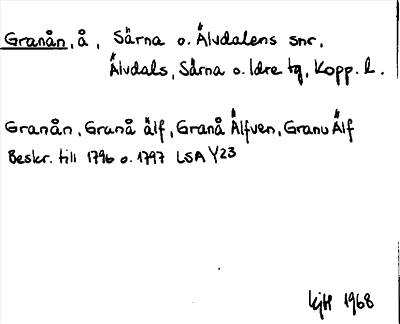 Granån, å, Särna o. Älvdalens snr,
Älvdals, Särna o. Idre tg, Kopp. l.
Granån, Granå älf, Granå Älfven, Granu Älf
Beskr. till 1796 o. 1797 LSA Y23
1968